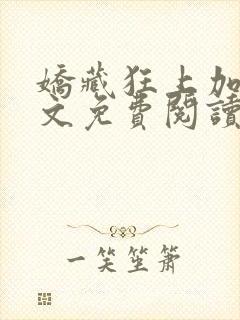 嬌藏狂上加
文免費閱讀
一笑笙簫